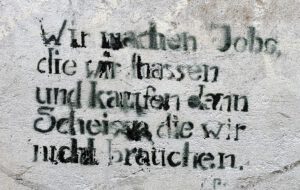 Wir machen Jobs,
die wir hassen
und kaufen dann
Scheisse, die wir
nicht brauchen.